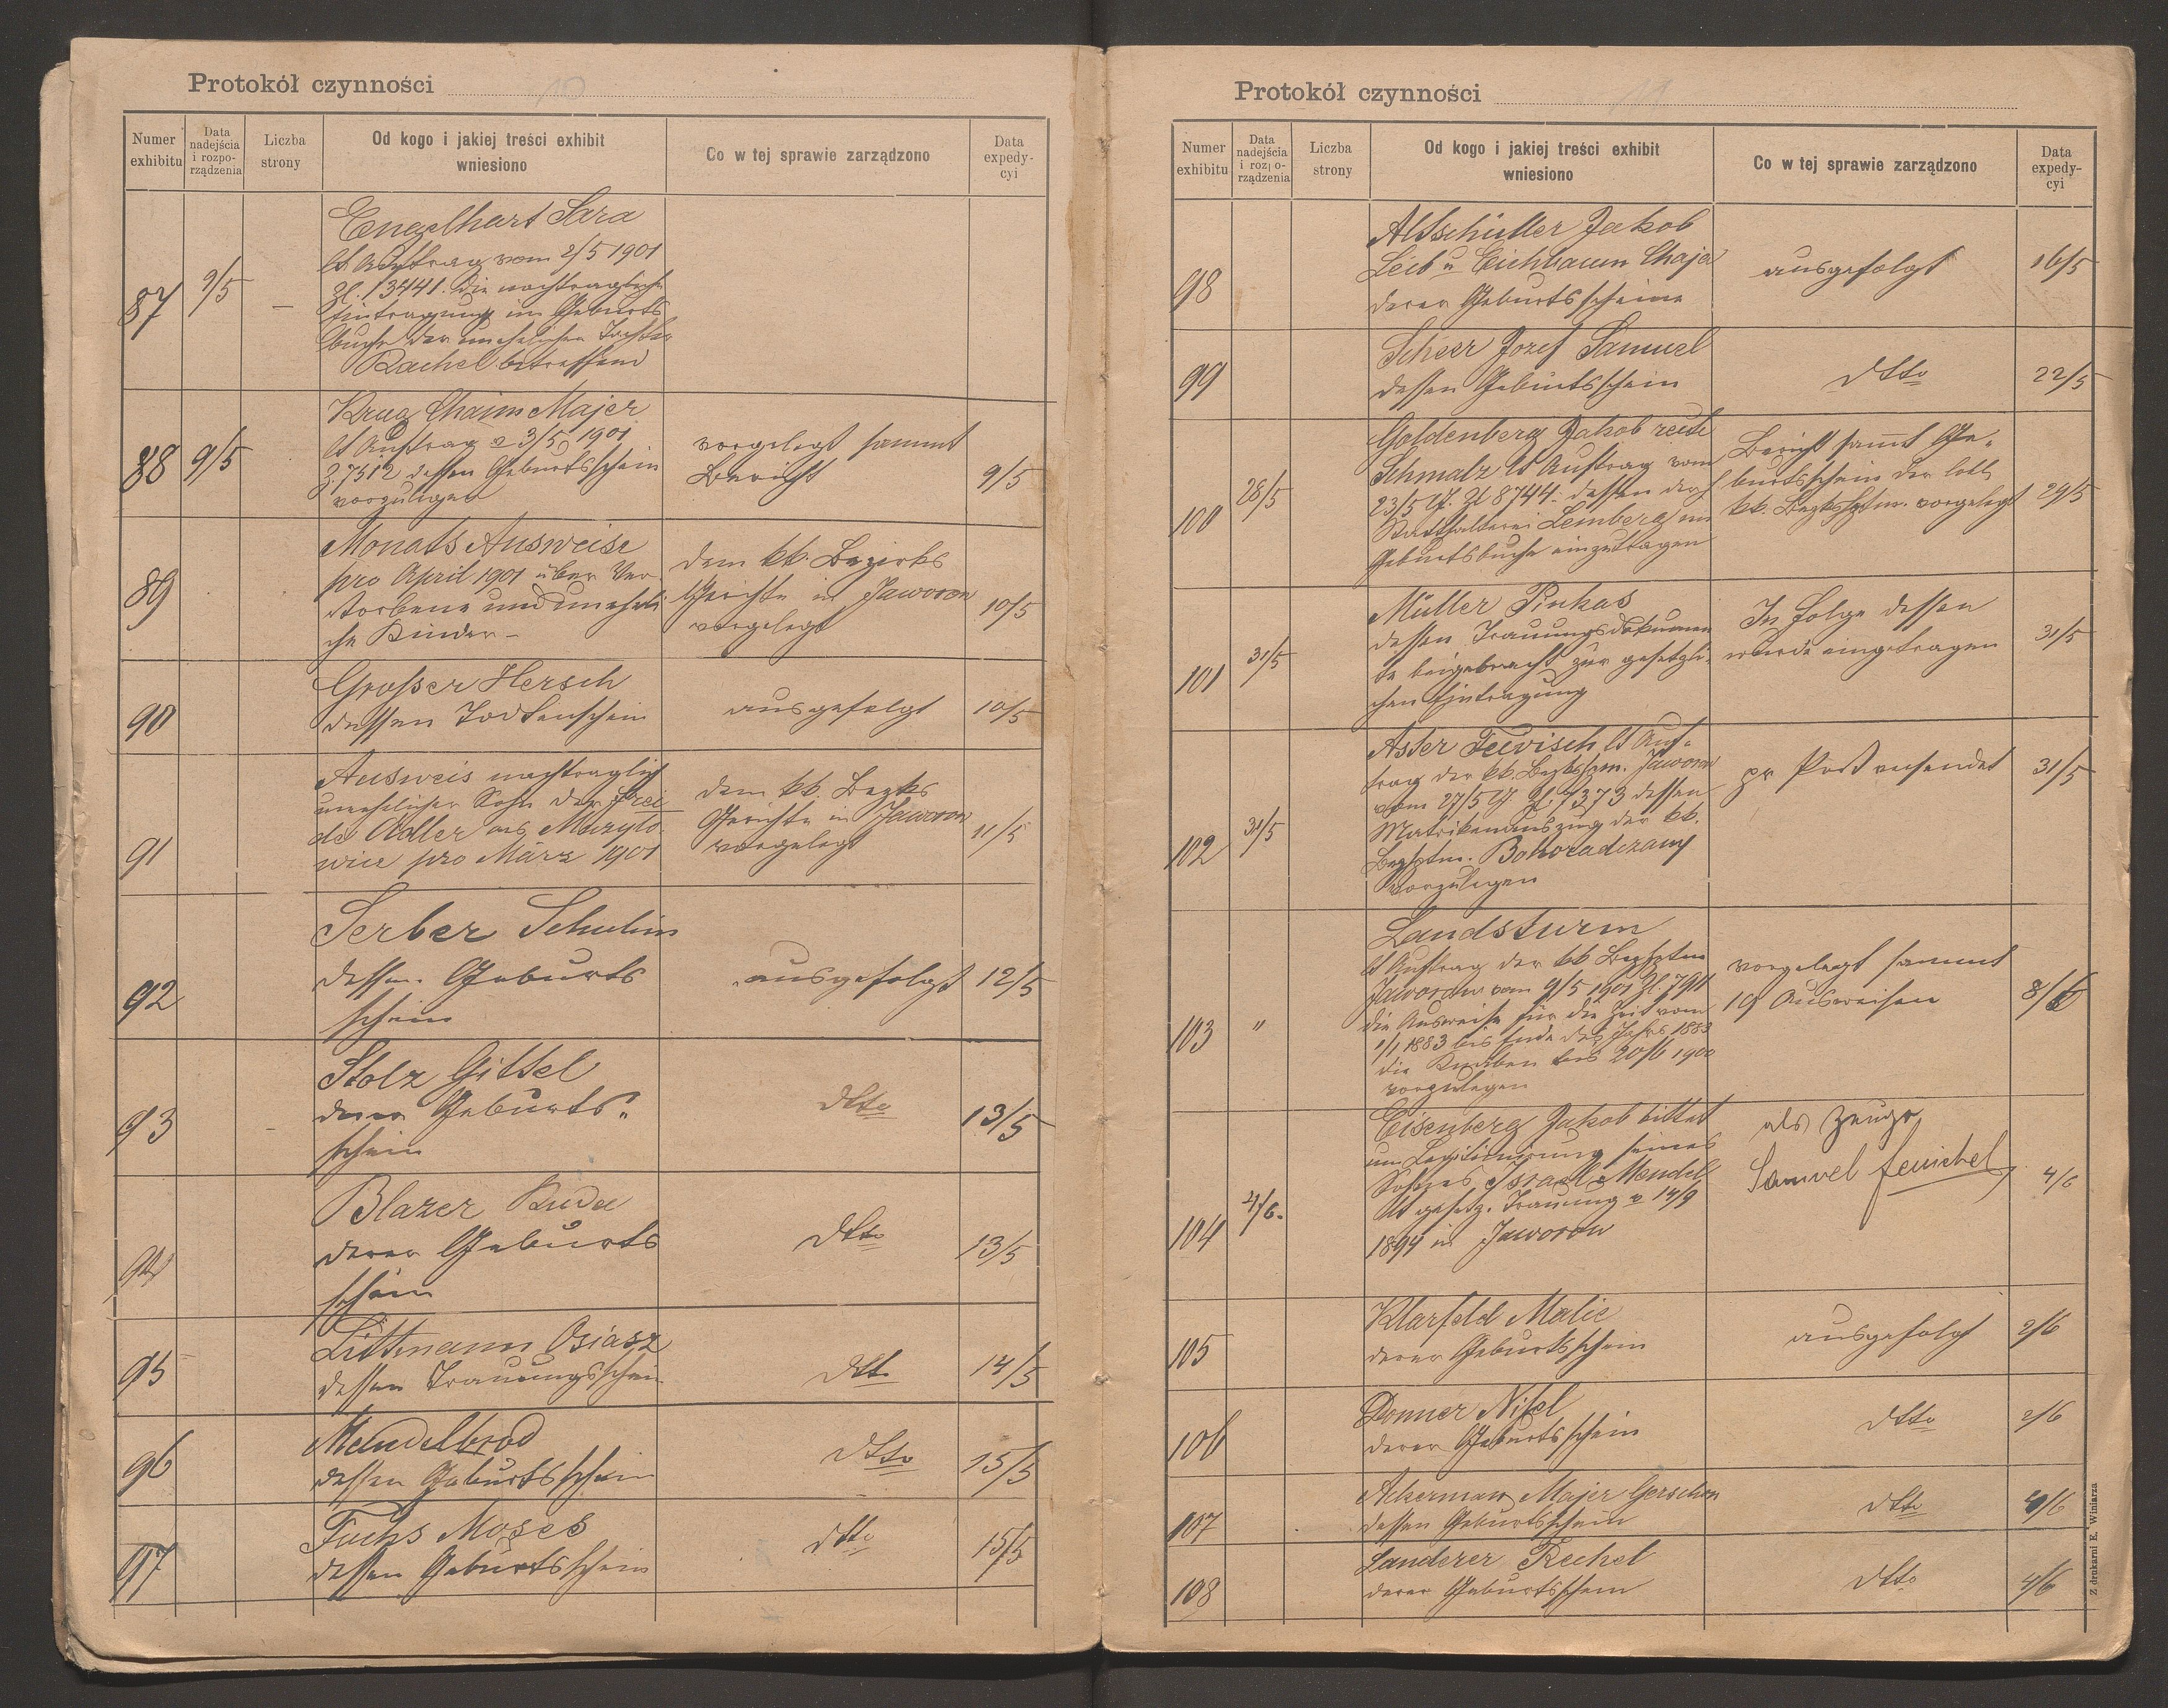 Protokół czynności 10
Numer exhibitu
Data nadejścia i rozpo- rządzenia
Liczba strony
Od kogo i jakiej treści exhibit wniesiono
Co w tej sprawie zarządzono
Data expedy- cyi
87 9/5 —
Engelhart Sara
lt Auftrag vom 2/5 1901
Zl. 13441. die nachtragliche
Eintragung im Geburts
buche der unehelichen Tochter
Rachel betreffend
88 9/5
Krug Chaim Majer
lt Auftrag v 3/5 1901
Z. 7512 dessen Geburtsschein
vorzulegen
vorgelegt sammt
Bericht
9/5
89
Monats Ausweise
pro April 1901 über Ver
storbene und uneheli
che Kinder –
dem kk. Bezirks
Gerichte in Jaworow
vorgelegt
10/5
90
Großer Hersch
dessen Todtenschein
ausgefolgt
10/5
91
Ausweis nachtraglich
unehelicher Sohn der Frei
de Adler aus Muzylo
wice pro März 1901
dem kk. Bezks
Gerichte in Jaworow
vorgelegt
11/5
92
Serber Schulim
dessen Geburts
schein
ausgefolgt
12/5
93
Stolz Gittel
deren Geburts„
schein
dtto
13/5
94
Blazer
deren Geburts
schein
dtto
13/5
95
Littmann Osiasz
dessen Trauungsschein
dtto
14/5
96
Mendelbrod
dessen Geburtsschein
dtto
15/5
97
Fuchs Moses
dessen Geburtsschein
dtto
15/5
Protokół czynności 11
Numer exhibitu
Data nadejścia i roz o- rządzenia
Liczba strony
Od kogo i jakiej treści exhibit wniesiono
Co w tej sprawie zarządzono
Data expedy- cyi
98
Altschüller Jakob
Leib u Eichbaum Chaja
deren Geburtsscheine
ausgefolgt
16/5
99
Scheer Jozef Samuel
dessen Geburtsschein
dtto
22/5
100 28/5
Goldenberg Jakob recte
Schmalz lt Auftrag vom
23/5 Zl 8744. dessen
Statthalterei Lemberg im
Geburtsbuche einzutragen
Bericht sammt Ge„
burtsschein der löbl
kk. Bezkshptm. vorgelegt
29/5
101 31/5
Müller Pinkas
dessen Trauungsdokumen
te beigebracht zur gesetzli„
chen Eintragung
In Folge dessen
wurde eingetragen
31/5
102 31/5
Aster Feivisch lt Auf„
trag der kk. Bezkshptm. Jaworow
vom 27/5 Zl. 7373 dessen
Matrikenauszug der kk.
Bezhptm. Bohorodczany
vorzulegen
pr Post versendet
31/5
103 "
Landsturm
lt Auftrag der kk Bezhptm
Jaworow vom 9/5 1901 Zl. 7911
die Ausweise für die Zeit vom
1/1 1883 bis Ende des Jahres 1883
die Knaben bis 20/6 1900
vorzulegen
vorgelegt sammt
19 Ausweisen
8/6
104 4/6.
Eisenberg Jakob bittet
um Legitimirung seines
Sohnes Israel Mendel
lt gesetz. Trauung v 14/9
1894 in Jaworow
als Zeuge
Samuel Feuichel
4/6
105
Klarfeld Malie
deren Geburtsschein
ausgefolgt
2/6
106
Donner Nisel
deren Geburtsschein
dtto
2/6
107
Ackerman Majer Gerschon
dessen Geburtsschein
dtto
4/6
108
Landerer Rechel
deren Geburtsschein
dtto
4/6
Z drukarni E. Winiarza